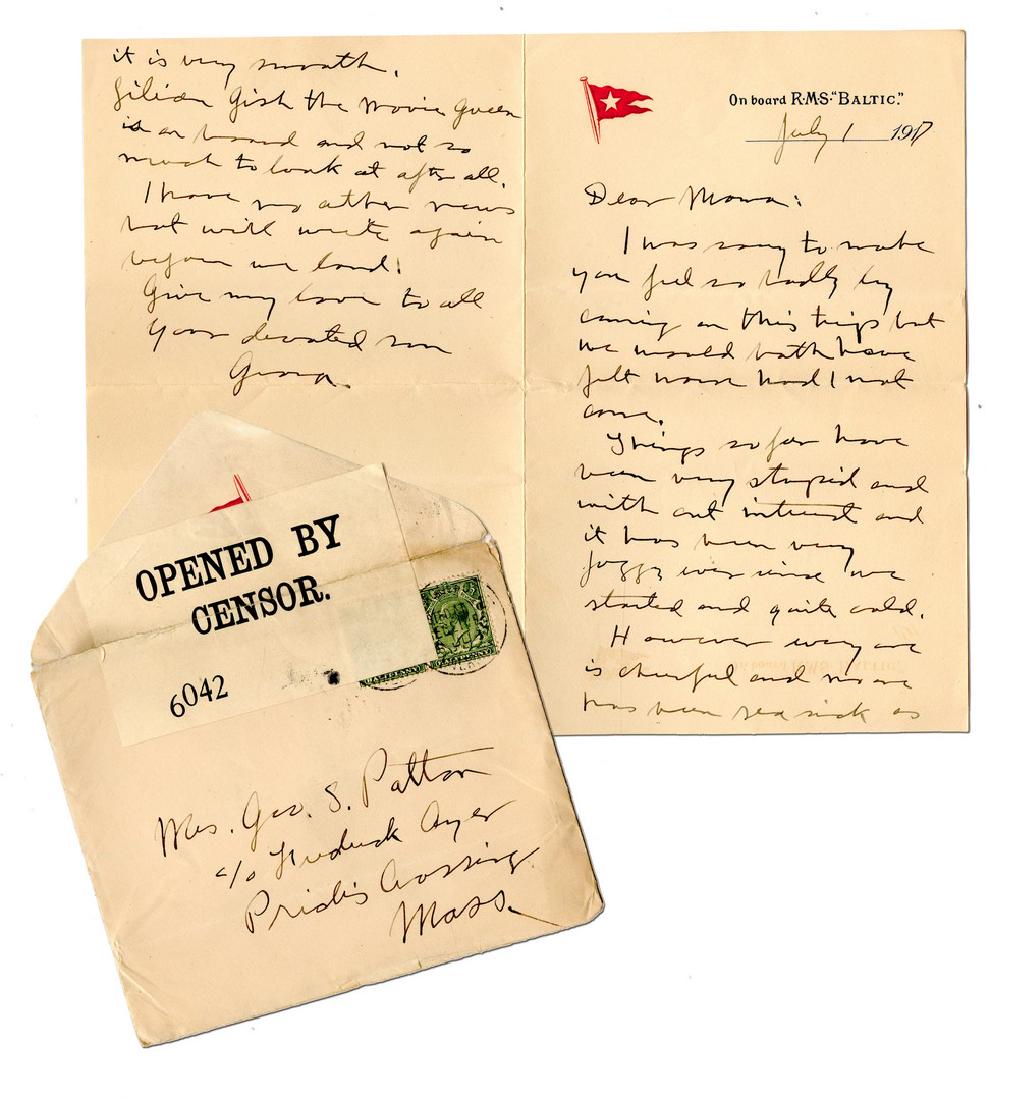 On board R·M·S·"BALTIC."
July 1 1917
Dear Mama:
I was sorry to make
you feel so badly by
coming on this trip but
we would both have
felt worse had I not
come.
Things so far have
been very stupid and
with out interest and
it has been very
foggy ever since we
started and quite cold.
However every one
is cheerful and no one
has been sea sick as
it is very smooth.
Lilian Gish the Movie Queen
is on board and not so
much to look at after all.
I have no other news
but will write again
before we land!
Give my love to all
Your devoted son
George
OPENED BY
CENSOR.
6042
Mrs. Geo. S. Patton
c/o Frederick Ayer
Prides Crossing
Mass.